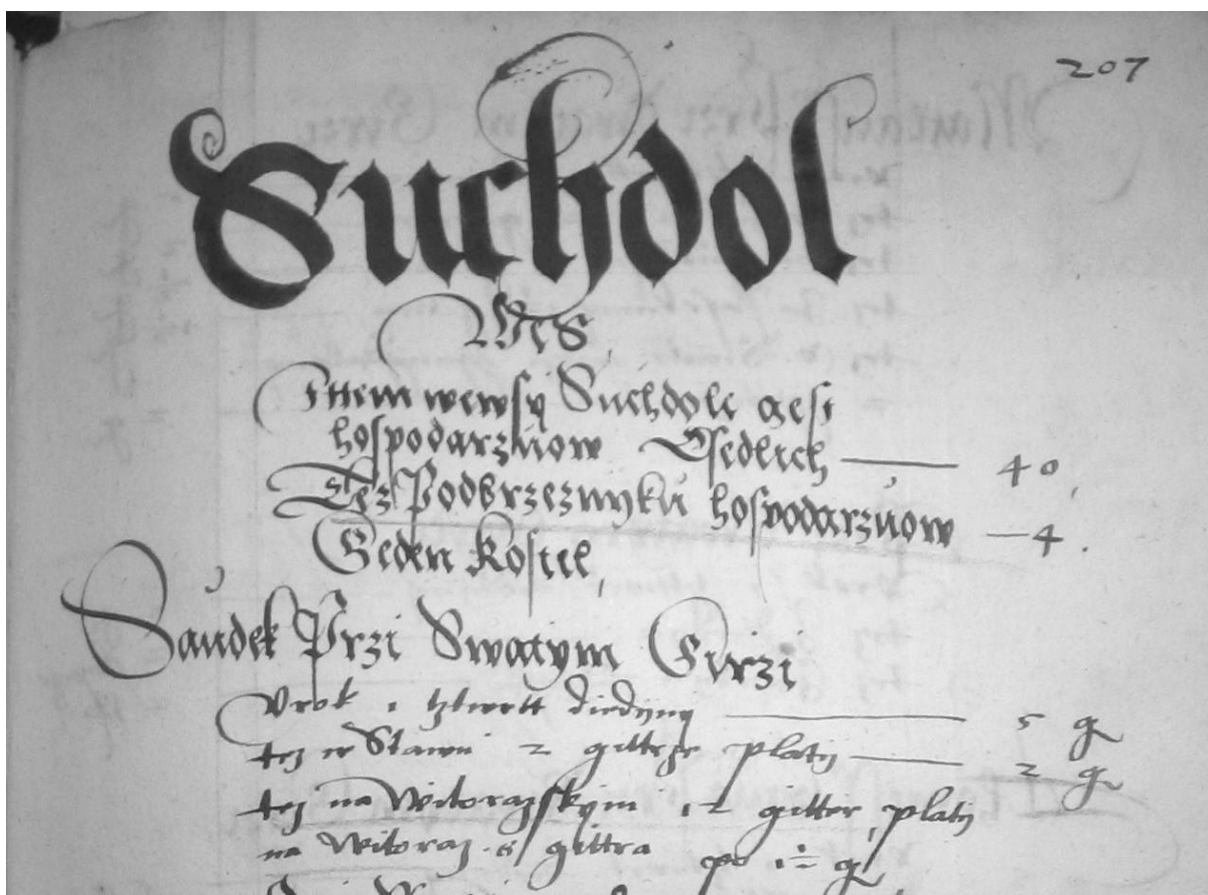 207
Suchdol
Wes,
Ittem wewsy Suchdole gest
hospodarzuow Osedlich — 40,
Tez Podbrzeznyku hospodarzuow — 4.
Geden Kostel,
Saudek Przi Swatym Girzi
Vrok 1 cztwrtt diediny — 5 g
tez w Stawu 2 gittrze platy — 2 g
tez na Witorazskym gitter platy
na Witoraz gittra po 1 g